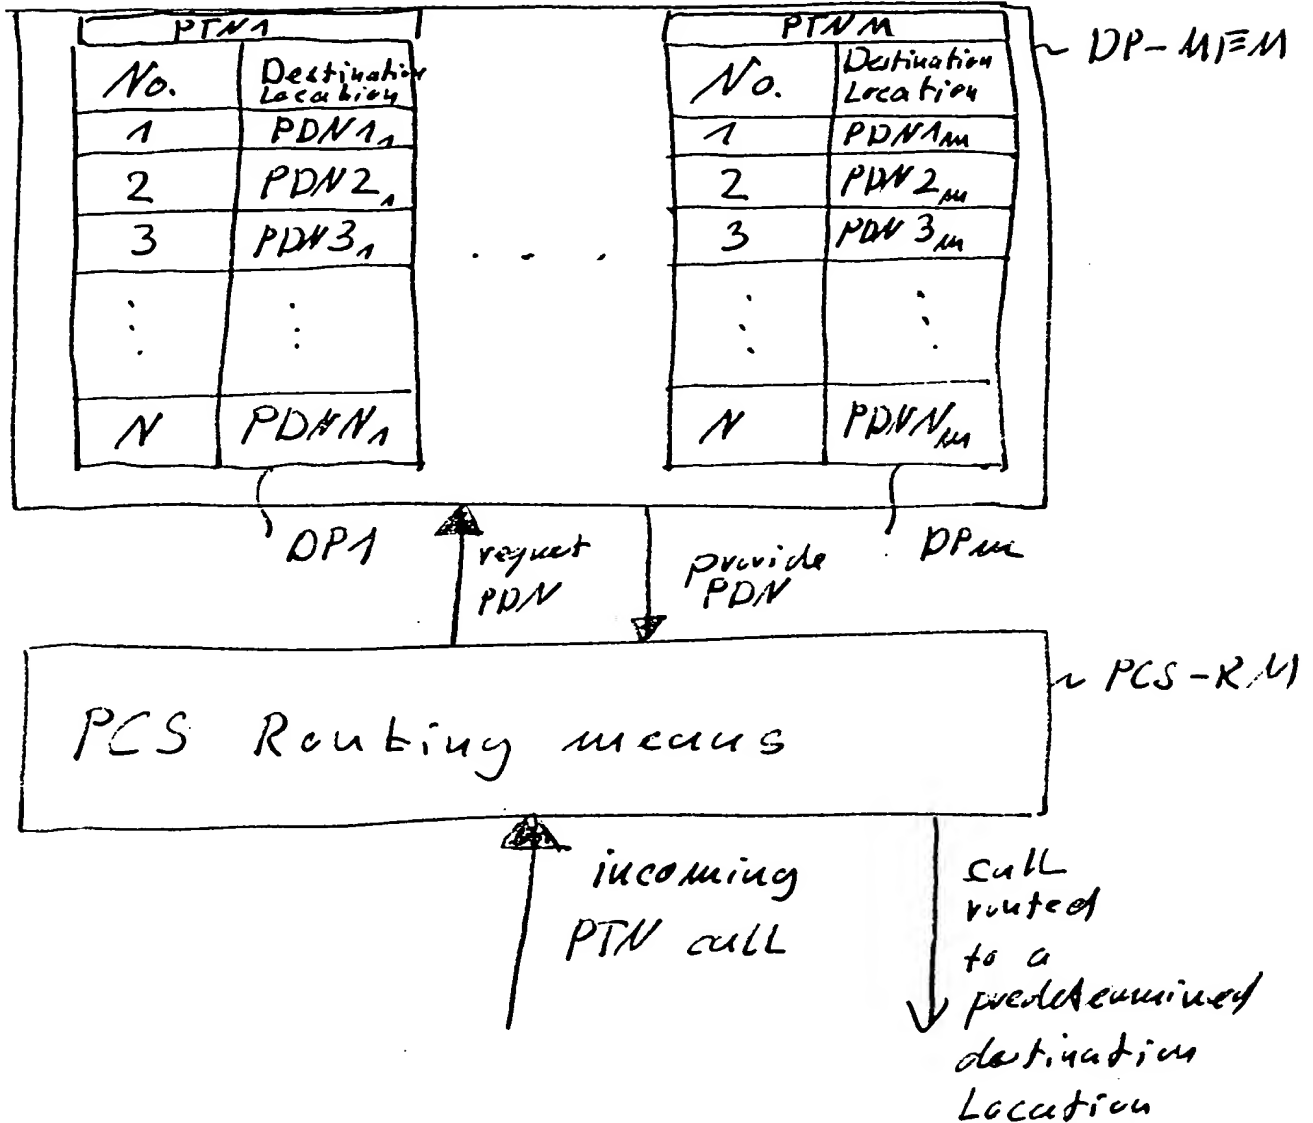 PTN1
No. Destination
Location
1 PDN1₁
2 PDN2₁
3 PDN3₁
N PDNN₁
PTNM
No. Destination
Location
1 PDN1m
2 PDN2m
3 PDN3m
N PDNNm
DP-MEM
. . . .
DP1
request
PDN
provide
PDN
DPm
PCS Routing means
PCS-RM
incoming
PTN call
call
routed
to a
predetermined
destination
Location